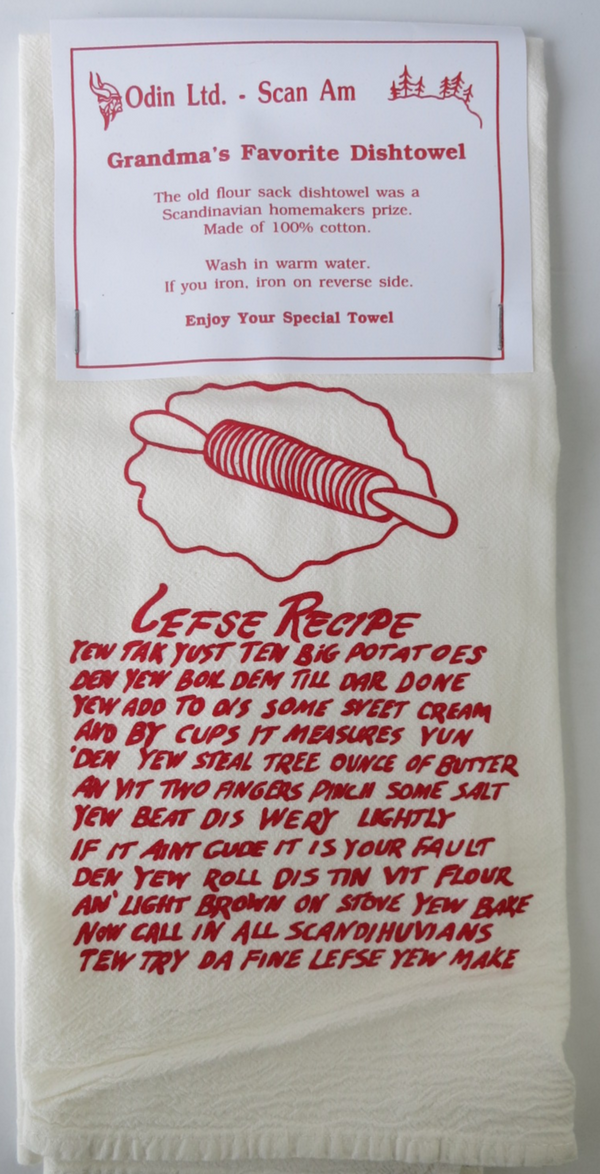 Odin Ltd. - Scan Am
Grandma's Favorite Dishtowel
The old flour sack dishtowel was a
Scandinavian homemakers prize.
Made of 100% cotton.
Wash in warm water.
If you iron, iron on reverse side.
Enjoy Your Special Towel
LEFSE RECIPE
YEW TAK YUST TEN BIG POTATOES
DEN YEW BOIL DEM TILL DAR DONE
YEW ADD TO DIS SOME SVEET CREAM
AND BY CUPS IT MEASURES YUN
'DEN YEW STEAL TREE OUNCE OF BUTTER
AN VIT TWO FINGERS PINCH SOME SALT
YEW BEAT DIS WERY LIGHTLY
IF IT AINT GUDE IT IS YOUR FAULT
DEN YEW ROLL DIS TIN VIT FLOUR
AN' LIGHT BROWN ON STOVE YEW BAKE
NOW CALL IN ALL SCANDIHUVIANS
TEW TRY DA FINE LEFSE YEW MAKE